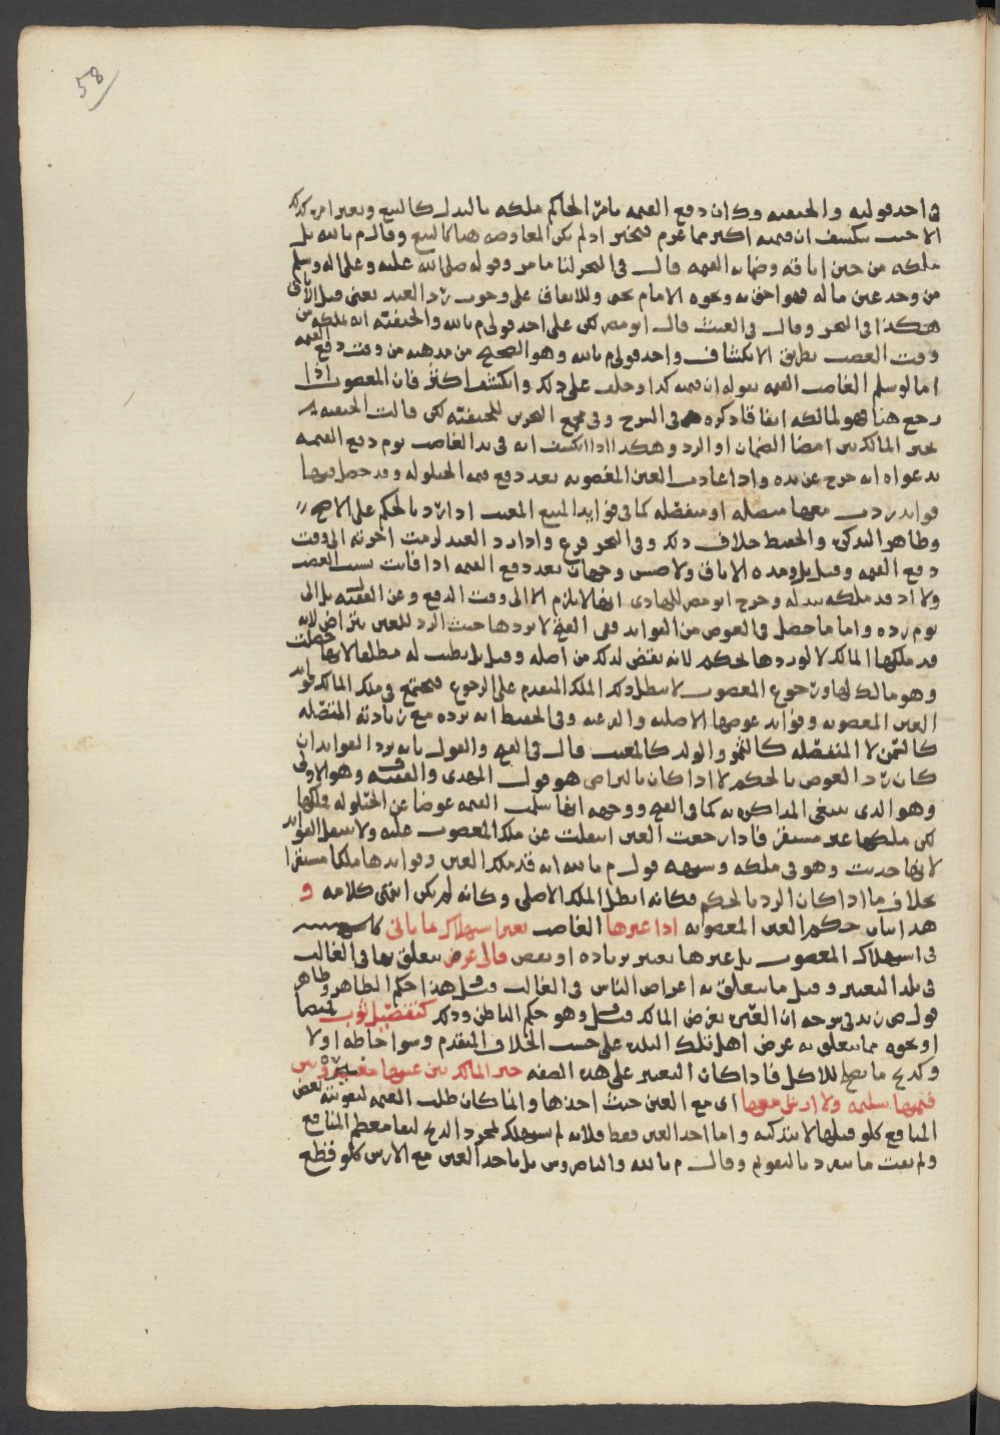 58
في احد قوليه والحنفيه وكان دفع القيمه بامر الحاكم ملكه بالبدل كالبيع وبغير امره كذلك
الا حيث ينكشف ان قيمته اكثر مما غرم فيخير اذ لم تكن المعاوضه هنا كالبيع وقال م بالله بل
ملكه من حين اباقه وضمانه القيمه قال في البحر لنا ما مر وقوله صلى الله عليه وعلى اله وسلم
من وجد عين ماله فهو احق به ونحوه الامام يحيى وللاتفاق على وجوب رد العبد يعني قبل
هكذا في البحر وقال في الغيث قال ابو مضر لكن على احد قولي م بالله والحنفيه انه يملكه من
وقت الغصب بطريق الانكشاف واحد قولي م بالله وهو الصحيح من مذهبه من وقت دفع القيمه
اما لو سلم الغاصب القيمه بقوله ان قيمته كذا وحلف على ذلك وانكشف اكثر فان المغصوب اذا
رجع هنا فهو لمالكه اتفاقا ذكره في الشرح وفي مجمع البحرين للحنفيه لكن قالت الحنفيه
يخير المالك بين امضا الضمان او الرد وهكذا اذا انكشف انه في يد الغاصب يوم دفع القيمه
بدعواه انه خرج عن يده واذا عادت العين المغصوبه بعد دفع قيمه الحيلوله وقد حصل فيها
فوايد ردت معها متصله او منفصله كما في فوايد المبيع المعيب اذا رد بالحكم على الاصح
وظاهر التذكره والحفيظ خلاف ذلك وفي البحر فرع واذا رد العبد لزمت اجرته الى وقت
دفع القيمه وقيل بل ومده الاباق ولا حبس وجهان بعد دفع القيمه اذا فاتت بسبب الغصب
ولا اذ قد ملكه ببدله وخرج ابو مضر للهادي انها لا تلزم الا الى وقت الدفع وعن الفقيه بل الى
يوم رده واما ما حصل في العوض من الفوايد ففي الفيح لا يردها حيث الرد للعين بتراض لانه
قد ملكها المالك لا لو ردها بحكم لانه نقض لذلك من اصله وقيل بل يطيب له مطلقا لانها حصلت
وهو مالك لها ورجوع المغصوب لا يبطل ذلك الملك المتقدم على الرجوع فيجتمع في ملك المالك فوايد
العين المغصوبه وفوايد عوضها الاصليه والفرعيه وفي الحفيظ انه يرده مع زيادته المتصله
كالسمن لا المنفصله كالثمر والولد كالمعيب قال في الفيح والقول بانه يرد الفوايد ان
كان رد العوض بالحكم لا اذا كان بالتراض هو قول المهدي والفقيه وهو الاولى
وهو الذي ينبغي المذاكره به كما في الفيح ووجهه انها سلمت القيمه عوضا عن الحيلوله فملكها
لكن ملكها غير مستقر فاذا رجعت العين انتقلت عن ملك المغصوب عليه ولا تنتقل الفوايد
لانها حدثت وهو في ملكه وشبهه قول م بالله انه قد ملك العين وفوايدها ملكا مستقرا
بخلاف ما اذا كان الرد بالحكم فكانه ابطل الملك الاصلي وكانه لم يكن انتهى كلامه و
هذا بيان حكم العين المغصوبه اذا غيرها الغاصب بغير استهلاك لها ياتي
في استهلاك المغصوب بل غيرها بغير زياده او نقص فالى غرض يتعلق بها في الغالب
في بلد التغيير وقيل ما يتعلق به اغراض الناس في الغالب قيل هذا حكم الظاهر وظاهر
قول ص زيد في شرحه ان العبره بغرض المالك قيل وهو حكم الباطن وذلك كتفصيل ثوب قميصا
او نحوه مما يتعلق به غرض اهل تلك البلد على حسب الخلاف المتقدم وسوا خاطه او لا
وكذبح ما يصلح للاكل فاذا كان التغيير على هذه الصفه خير المالك بين عينها مغيره وبين
قيمتها سليمه ولا ارش معها اي مع العين حيث اخذها وانما كان طلب القيمه لتفويته بعض
المنافع كلو قبلها لا بتذكيه واما اخذ العين فقط فلانه لم يستهلك بمجرد الذبح لبقا معظم المنافع
ولم يفت ما يفرد بالتقويم وقال م بالله والناصر وش بل ياخذ العين مع الارش كلو قطع